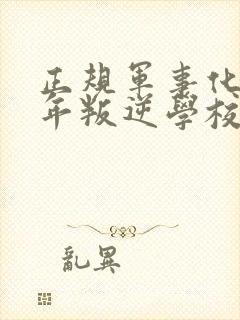 正規軍事化
年叛逆學校
亂異